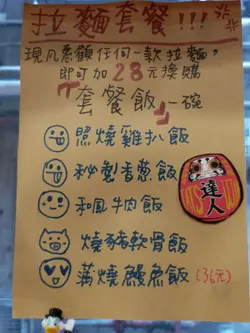 拉麵套餐!!!
現凡惠顧任何一款拉麵。
即可加28元換購
套餐飯一碗
照燒雞扒飯
秘製香蔥飯
和風牛肉飯
燒豬軟骨飯
蒲燒鰻魚飯(36元)
達人